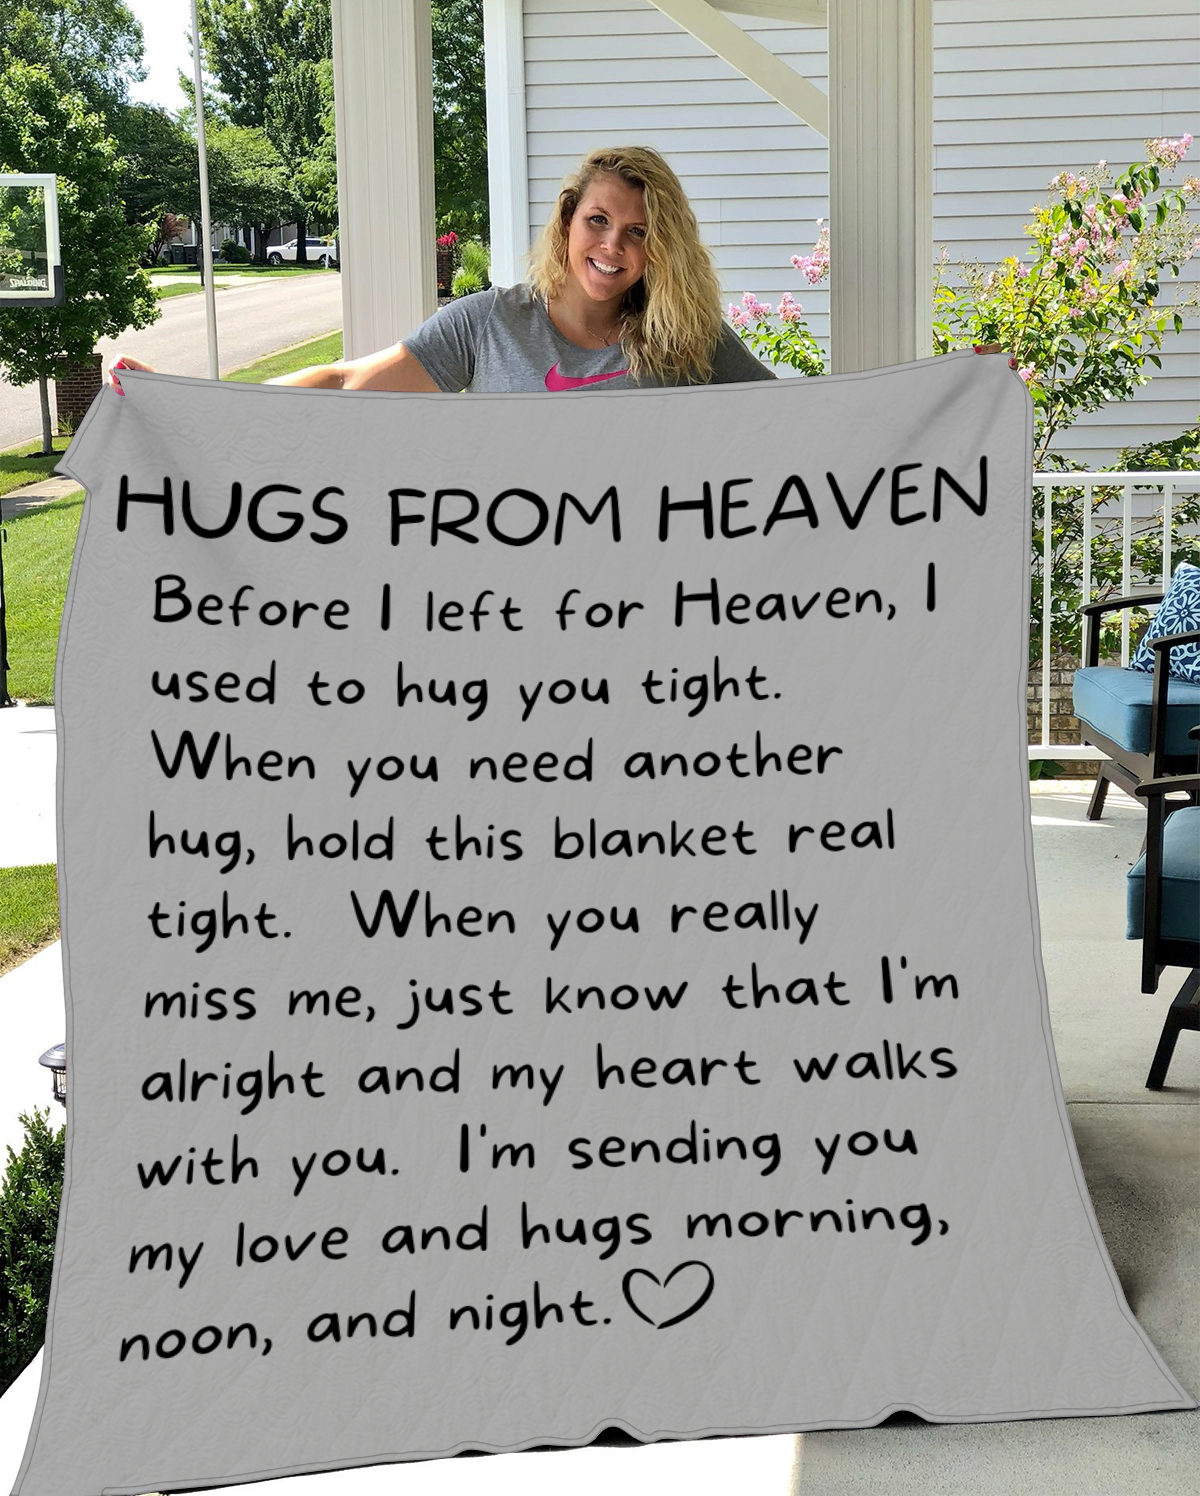 SPALDING
HUGS FROM HEAVEN
Before I left for Heaven, I
used to hug you tight.
When you need another
hug, hold this blanket real
tight. When you really
miss me, just know that I'm
alright and my heart walks
with you. I'm sending you
my love and hugs morning,
noon, and night.